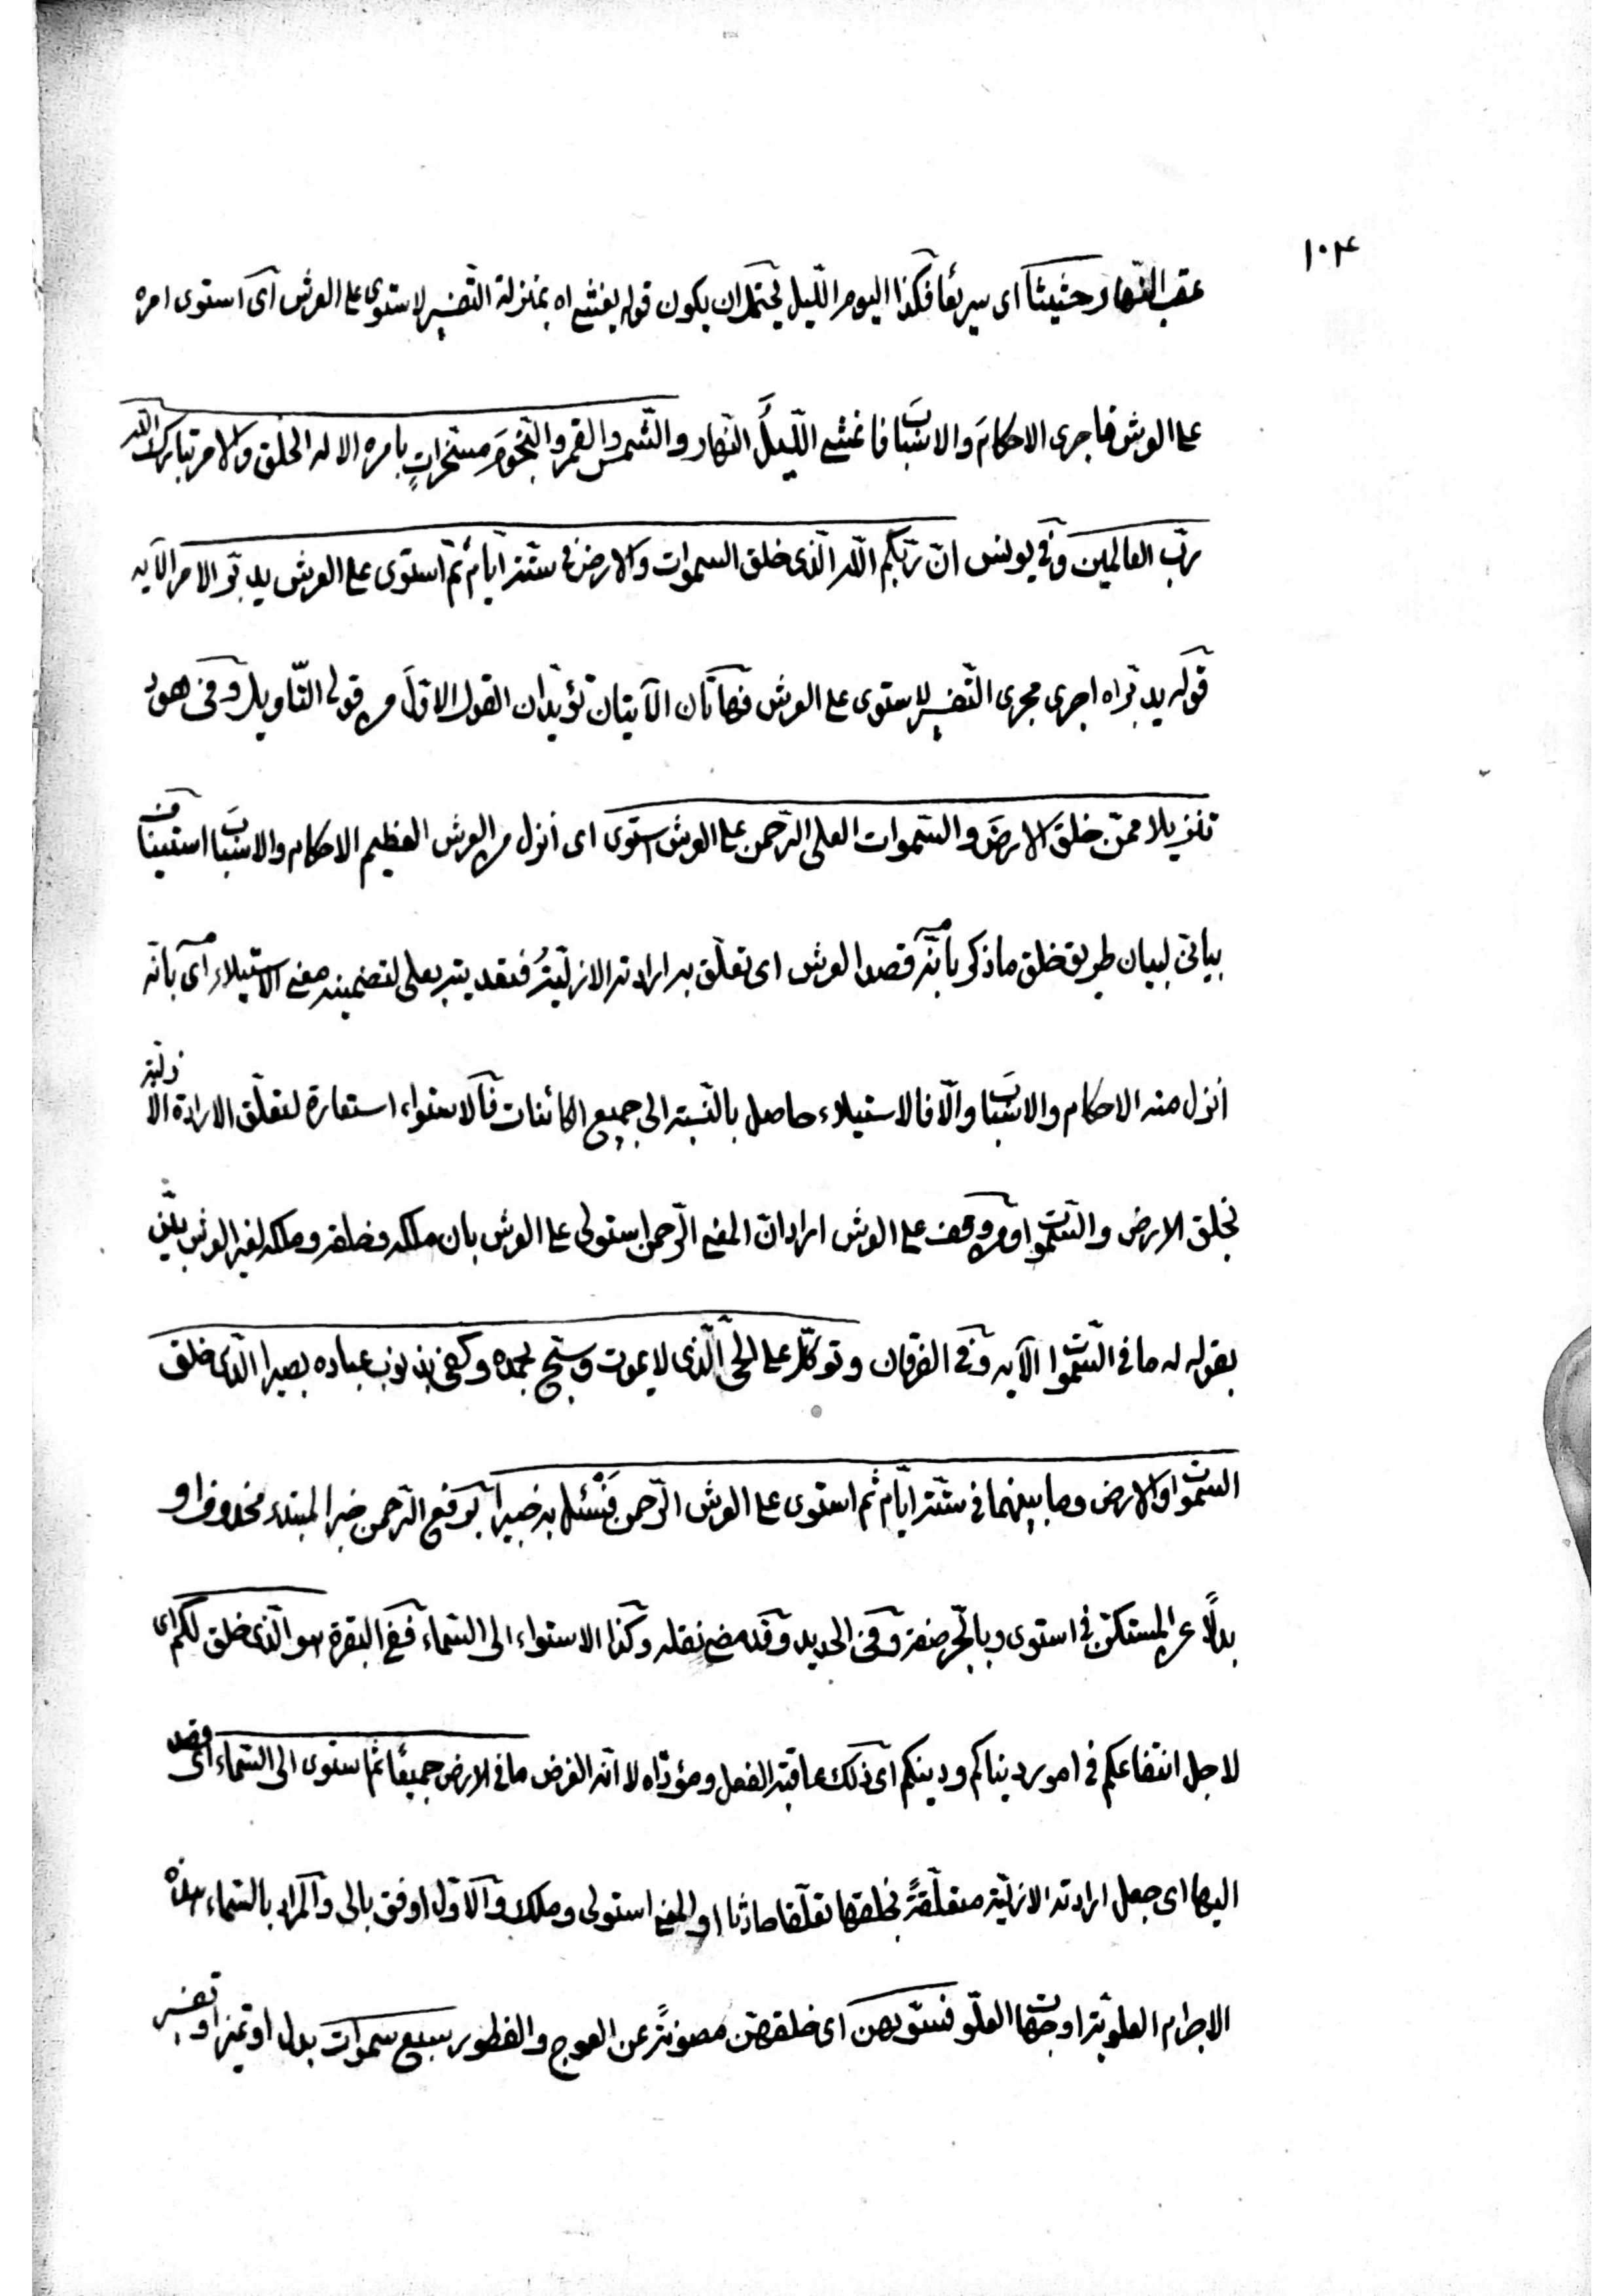 ١٠٤
عقب النّهار حثيثا اى سريعًا فكذا اليوم الّليل يحتمل ان يكون قوله يغشى اه بمنزلة التّفسير لاستوى على العرش اى استوى امره
على العرش فاجرى الاحكامَ والاسبابَ فاغشى الّليلَ النّهار والشّمس والقمر والنّجومَ مسخّراتٍ بامره الا له الخلق والامر تبارك الله
ربّ العالمين وفى يونس انّ ربّكم الله الّذى خلق السموات والارض فى ستّة ايّام ثمّ استوى على العرش يدبّر الامر الآيه
قوله يدبّر اه اجرى مجرى التّفسير لاستوى على العرش فهاتان الآيتان تؤيّدان القول الاوّلَ من قولى التّاويل وفى هود
تنزيلا ممّن خلق الارضَ والسّموات العلى الرّحمن على العرش استوى اى انزل من العرش العظيم الاحكام والاسبابَ استيناف
بيانىّ لبيان طريق خلق ما ذكر بانّه قصد العرش اى تعلّق به ارادته الازليّةُ فتعديته بعلى لتضمينه معنى الاستيلاء اى بانّه
انزل منه الاحكام والاسبابَ والّا فالاستيلاء حاصل بالنّسبة الى جميع الكائنات فالاستواء استعارة لتعلّق الارادة الازليّة
بخلق الارض والسّموات ومن وقف على العرش اراد انّ المعنى الرّحمن استولى على العرش بان ملكه وخلقه وملكه لغير العرش بيّن
بقوله له ما فى السّموات الآيه وفى الفرقان وتوكّل على الحىّ الّذى لا يموت وسبّح بحمده وكفى به بذنوب عباده بصيرا الّذى خلق
السّموات والارض وما بينهما فى ستّة ايّام ثمّ استوى على العرش الرّحمن فَسْئل به خبيرا برفع الرّحمن خبرا لمبتدء محذوف او
بدلًا عن المستكن فى استوى وبالجّر صفة وفى الحديد وقد مضى نقله وكذا الاستواء الى السّماء ففى البقرة هو الّذى خلق لكم اى
لاجل انتفاعكم فى امور ديناكم ودينكم اى ذلك عاقبة الفعل ومؤدّاه لا انّه الغرض ما فى الارض جميعًا ثمّ استوى الى السّماء اى قصد
اليها اى جعل ارادته الازليّة متعلّقةً بخلقها تعلّقا حادثا او المعنى استولى وملك والاوّل اوفق بالى والمراد بالسّماء هذه
الاجرام العلويّة او جهات العلّو فسوّيهنّ اى خلقهنّ مصونةً عن العوج والفطور سبع سموات بدل او تميز او تفسير